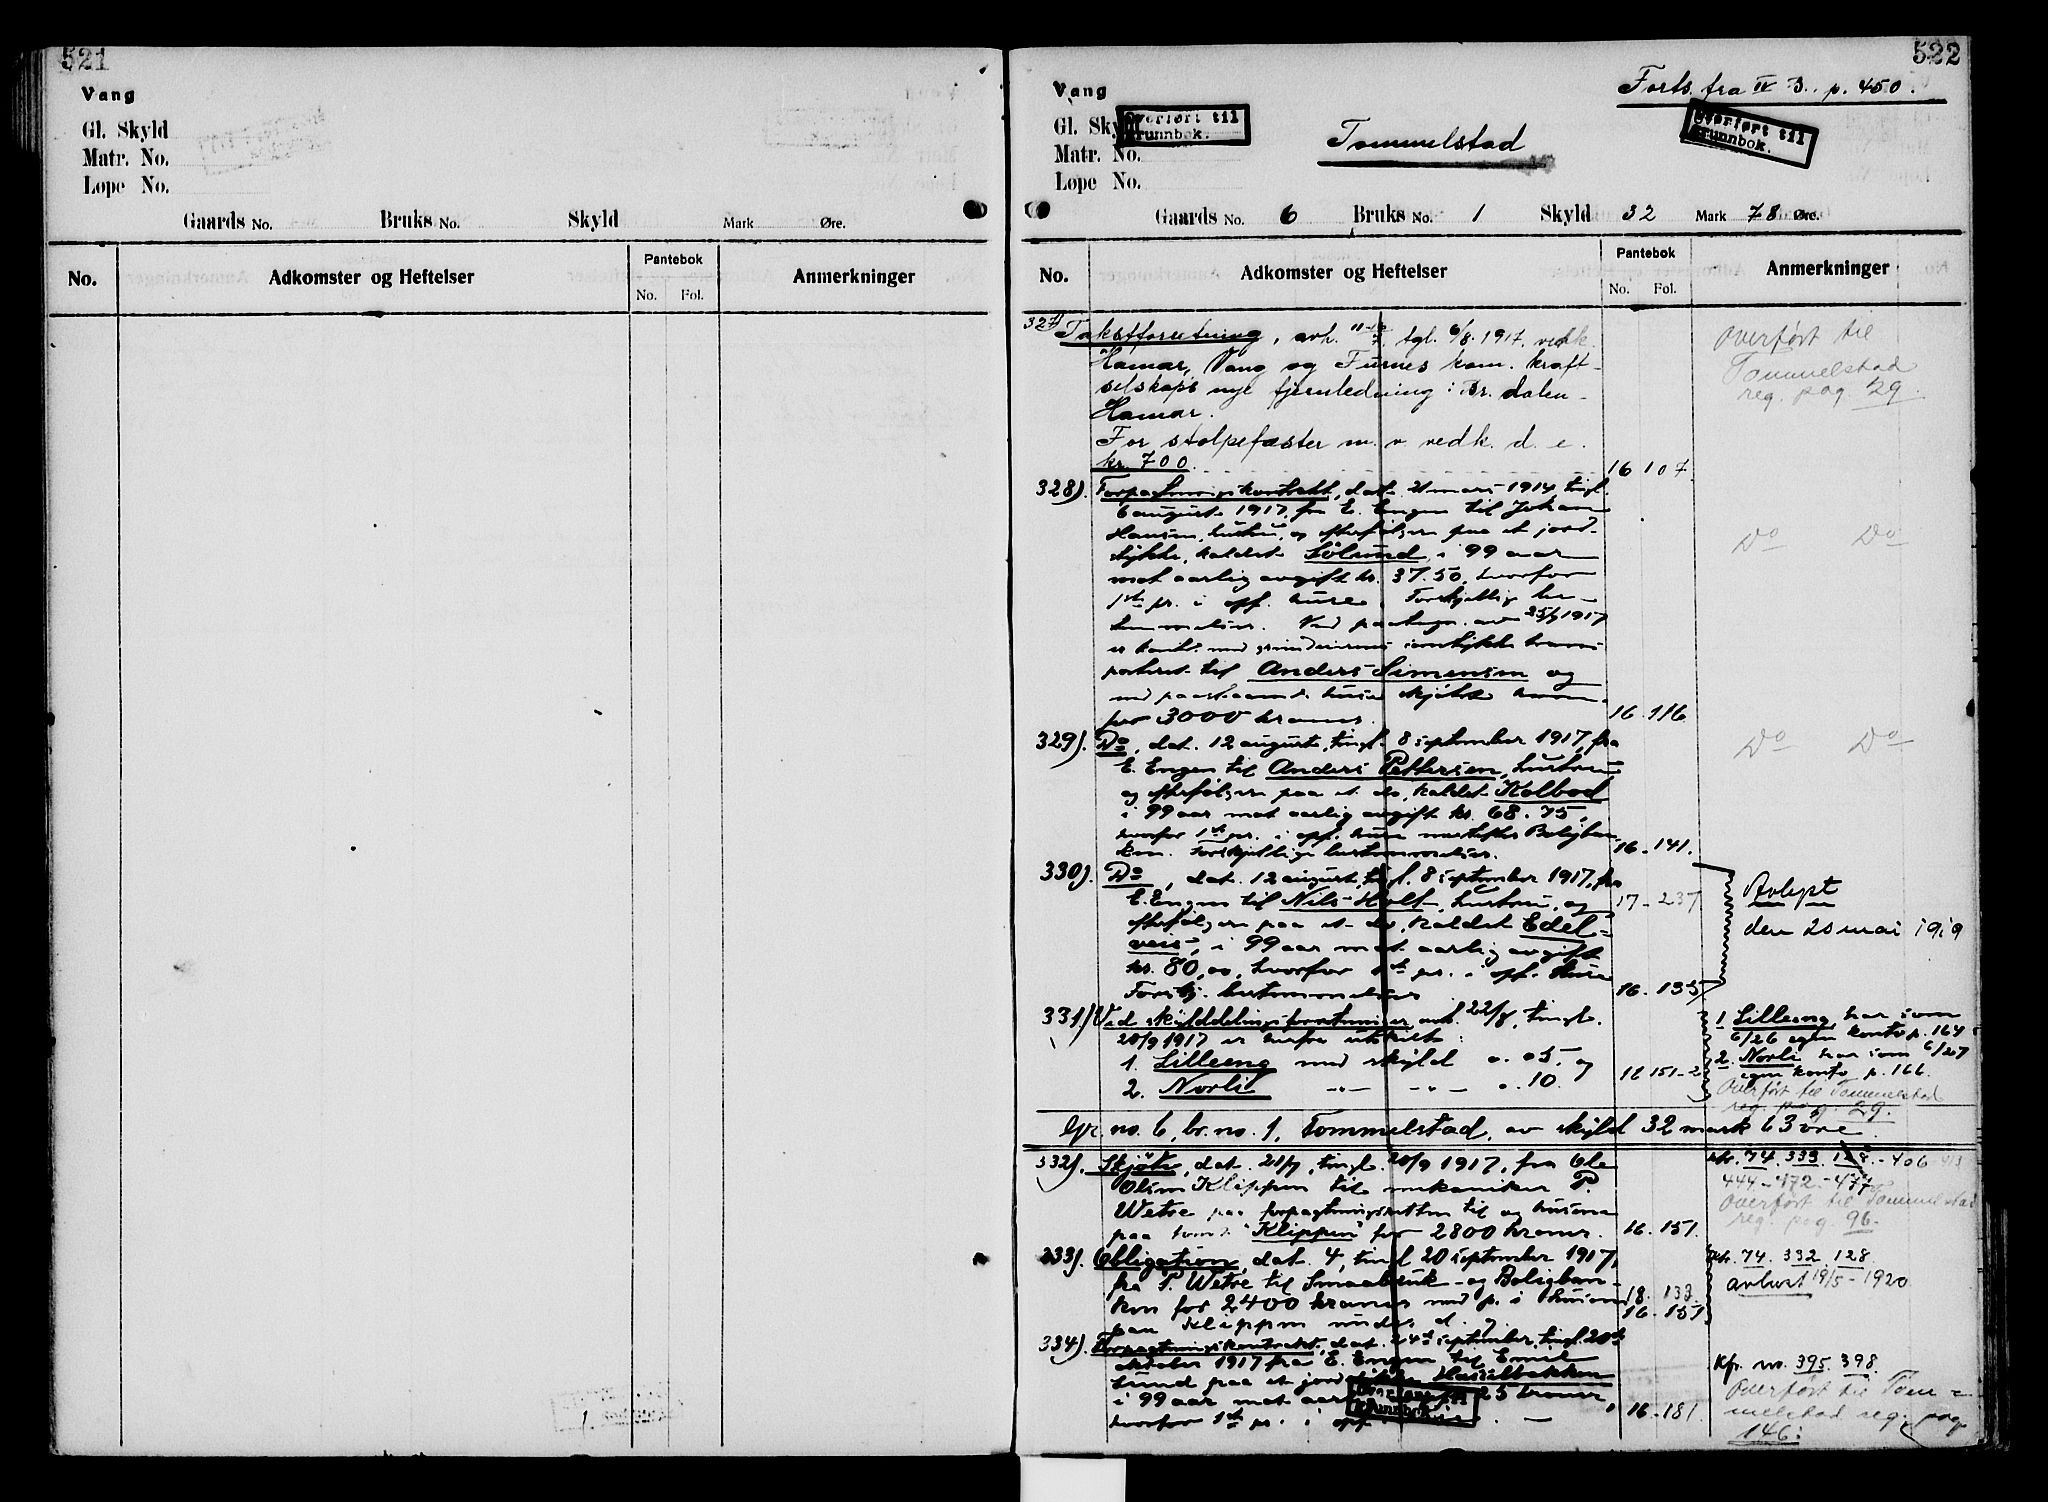 521
Vang
Gl. Skyld
Matr. No.
Løpe No.
Gaards No. Bruks No. Skyld Mark Øre.
No. Adkomster og Heftelser Pantebok No. Fol. Anmerkninger
522
Forts. fra IV B. p. 450.
Vang
Gl. Skyld
Matr. No.
Løpe No.
Overført til
grunnbok.
Tommelstad
Overført til
grunnbok.
Gaards No. 6 Bruks No. 1 Skyld 32 Mark 78 Øre.
No. Adkomster og Heftelser Pantebok No. Fol. Anmerkninger
327) Takstforretning, avh. tgl. 6/8. 1917, vedk.
Hamar, Vang og Furnes kom. kraft-
selskaps nye fjernledning: Br.dalen-
Hamar.
For stolpefæster m. v vedk. d. e.
kr. 700. 16 107.
Overført til
Tommelstad
reg. pag. 29.
328). Forpagtningskontrakt, dat. 21 mars 1914 tingl.
6 august 1917, fra E. Engen til Johan
Hansen, hustru, og efterfølgere paa et jord-
stykke, kaldet Sölund, i 99 aar
mot aarlig avgift kr. 37.50, hvorfor
1ste pr. i opf. huse. Forskjellig be-
stemmelser. Ved paategn. av 25/7 1917
er kontr. med grundeierens samtykke trans-
porteret til Anders Simensen og
med paastaaende huse skjøtet ham
for 3000 kroner. 16. 116.
Do Do
329). Do, dat. 12 august, tingl. 8 september 1917, fra
E. Engen til Anders Pettersen, hustru
og efterfølgere paa et do, kaldet Kolbod
i 99 aar mot aarlig avgift kr. 68.75,
hvorfor 1ste pr. i opf. huse næstefter Boligban-
ken. Forskjellige bestemmelser. 16 - 141.
Do Do
330). Do, dat. 12 august, tingl. 8 september 1917, fra
E. Engen til Nils Holt, hustru, og 17 - 237
efterfølgere paa et do, kaldet Edel-
veis, i 99 aar mot aarlig avgift
kr. 80,00, hvorfor 1ste pr. i opf. huse
Forskj. bestemmelser 16. 135
Avlyst
den 20 mai 1919
331) Ved skylddelingsforretning avh. 22/8, tingl.
20/9 1917 er herfra utskilt:
1. Lilleeng med skyld 0.05. og
2. Norli -"- -"- 0.10. 16 151-2
1 Lilleeng har som
6/26 egen konto p. 164
2. Norli har som 6/27
egen konto p. 166.
Overført til Tommelstad
reg. pag. 29.
Gr. no. 6, br. no. 1, Tommelstad, av skyld 32 mark 63 øre.
332). Skjöte, dat. tingl. 20/9 1917, fra Ole
Olsen Klippen til mekaniker P.
Wetre paa forpagtningsretten til og husene
paa tomt "Klippen" for 2800 kroner. 16. 151.
kfr. 74. 333. 128. - 406
444 - 472 - 477
Overført til Tommelstad
reg. pag. 96.
333). Obligation, dat. 4, tingl 20 september 1917,
fra P. Wetre til Smaabruk- og Boligban-
ken for 2400 kroner med p. i husene 18. 133.
paa Klippen under d. e. 16 - 151
Kfr. 74. 332. 128.
avlyst 19/5 - 1920
334). Forpagtningskontrakt, dat. 24de september, tingl. 20de
oktober 1917 fra E. Engen til Emil
Lund paa et jordstykke Hasselbakken
i 99 aar mot aarlig 25 kroner
hvorfor 1ste pr. i opf. 16 - 181.
Overført til
grunnbok.
Kfr. no. 395. 398.
Overført til Tom-
melstad reg. pag.
146.